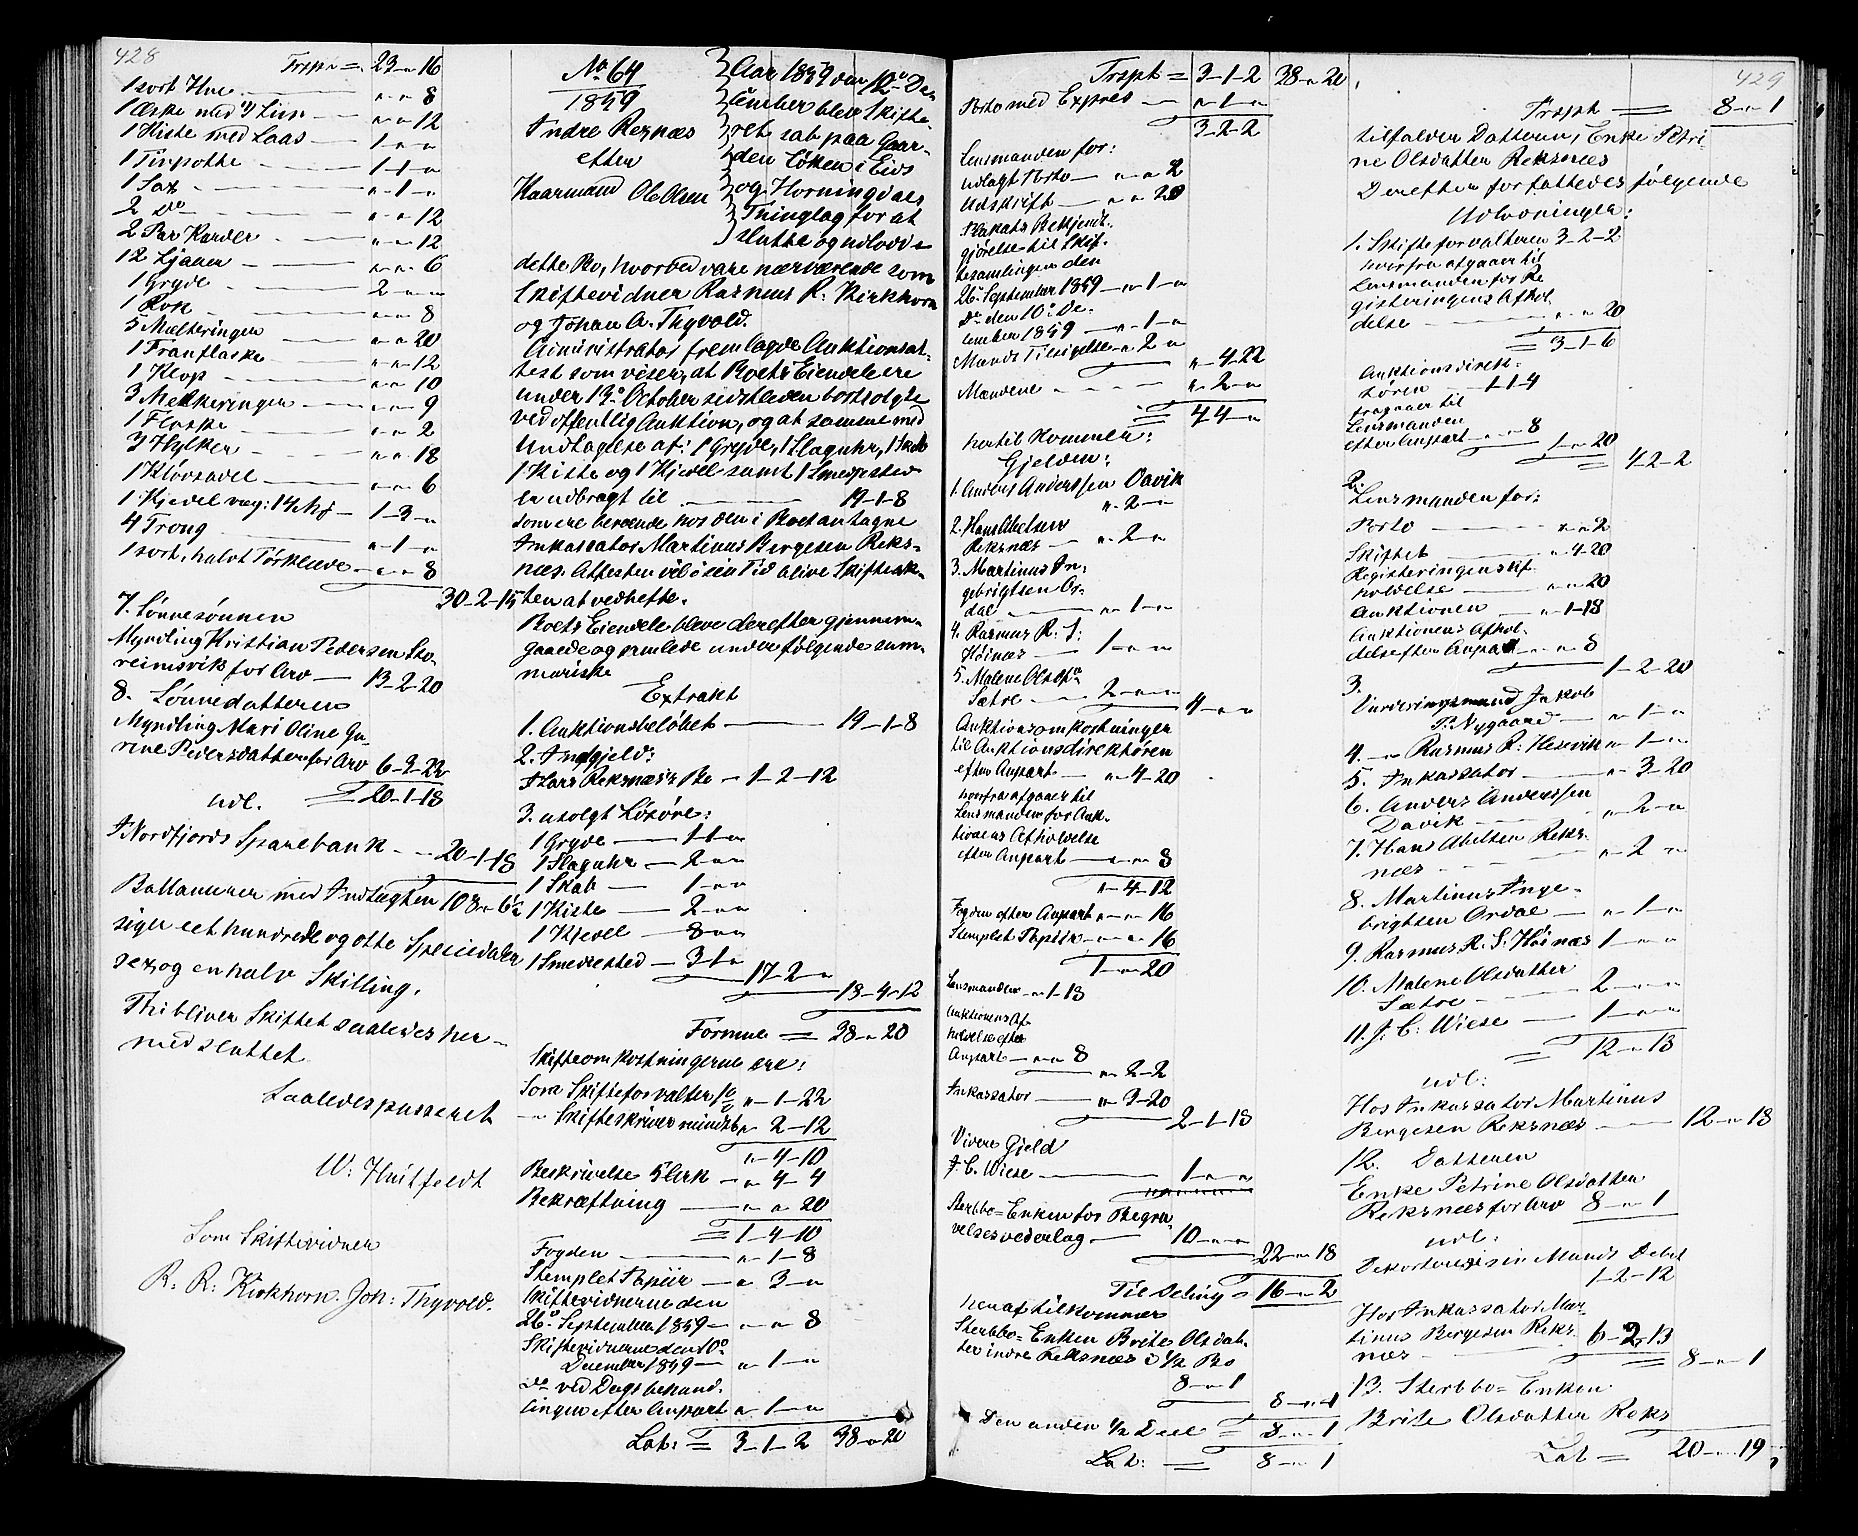 428
Trspt = 23 " 16
1 sort Hue — " " 8
1 Æske med 4 Liin — " " 12
1 Kiste med Laas — 1 " "
1 Tinpotte — 1-1-"
1 Sax — " 1 "
2 Do — " " 12
2 Par Karder — " " 12
12 Ljaaer — " " 6
1 Gryde — 2 " "
1 Rok — " " 8
5 Melkeringer — " " 20
1 Tranflaske — " " 12
1 Klop — " " 10
3 Melkeringer — " " 9
1 Flaske — " " 2
3 Hylker — " " 18
1 Kløvsadel — " " 6
1 Kjedel væg: 14 Mk — 1-3-"
4 Troug — " 1 "
1 sort, halvt Tørklæde — " " 8
30-2-15
7. Sønnesønnen
Myndling Kristian Pedersen Sto-
reimsvik for Arv — 13-2-20
8. Sønnedatteren
Myndling Mari Oline Gu-
rine Pedersdatter for Arv 6-3-22
= 20-1-18
udl.
I Nordfjords Sparebank — 20-1-18
Ballancerer med Indtægten 108 " 6½
siger eet hundrede og otte Speciedaler
sex og en halv Skilling.
Thi bliver Skiftet saaledes her-
med sluttet
Saaledes passeret
W. Huitfeldt
Som Skiftevidner
R. R. Kirkhorn. Joh: Thyvold.
No 64
1859
Indre Reznæs
efter
Huusmand Ole Olsen
Aar 1859 den 10de De-
cember blev Skifte-
ret sat paa Gaar-
den Løken i Eids
og Horningdals
Thinglag for at
slutte og udlodde
dette Bo, hvorved vare nærværende som
Skiftevidner Rasmus R. Kirkhorn
og Johan A. Thyvold.
Administrator fremlagde Auktionsat-
test som viser, at Boets Eiendele ere
under 13de October sidstleden bortsolgte
ved offentlig Auktion, og at samme med
Undtagelse af: 1 Gryde, 1 Slaguhr, 1 Skab
1 Kiste og 1 Kjedel samt 1 Smediested
er udbragt til — 19-1-8
som ere beroende hos den i Boet antagne
Inkassator Martinus Børgesen Reks-
næs. Attesten vil i sin Tid blive Skifteak-
ten at vedhefte.
Boets Eiendele bleve derefter gjennem-
gaaede og samlede under følgende sum-
mariske
Extrakt
1. Auktionsbeløbet — 19-1-8
2. Indgjeld:
I Lars Reksnæs's Bo — 1-2-12
3. usolgt Løsøre:
1 Gryde — 1-1-"
1 Slaguhr — 2 " "
1 Skab — 1 " "
1 Kiste — 2 " "
1 Kjedel — 8 " "
1 Smediested — 3-1-"
17-2-"
18-4-12
Formue = 38 " 20
Skifteomkostningerne ere:
Som Skifteforvalter — " 1-22
" Skifteskriver mindst " 2-12
" 4-10
Beskrivelse 5 Ark — " 4-4
Bekræftning — " " 20
= 1-4-10
Fogden — " 1-8
Stemplet Papiir — " 3 "
Skiftevidnerne den
26de September 1859 — " " 8
Skiftevidnerne den 10de
December 1859 — " 1 "
do ved Dags behand-
lingen efter Anpart " 1 "
Lat: = 3-1-2 38 " 20
Trspt = 3-1-2 38 " 20
Porto med Expres — " 1 "
3-2-2
Lensmanden for:
udlagt Porto — " " 2
Udskrift — " " 20
Plakats Bekjendt-
gjørelse til Skif-
tesamlingen den
26de September 1859 — " 1 "
Do den 10de De-
cember 1859 — " 1 "
Mands Tilsigelse " 2 "
" 4-22
Mændene — " 2 "
= 4-4-"
hertil kommer:
Gjelden:
1. Anders Anderssen Davik
" 2 "
2. Hans Abelsen
Reksnæs — " 2 "
3. Martinus In-
gebrigtsen Or-
dal — " 1 "
4. Rasmus R. S.
Høinæs — 1 " "
5. Malene Olsdtr
Sætre — 2 " "
4 " "
Auktionsomkostninger
til Auktionsdirektøren
efter Anpart — " 4-20
hvorfra afgaaer til
Lensmanden for Auk-
tionens Afholdelse
efter Anpart — " " 8
" 4-12
Fogden efter Anpart " " 16
Stemplet Papiir — " " 16
1 " 20
Lensmanden — " 1-18
Auktionens Af-
holdelse efter
Anpart — " " 8
" 2-2
Inkassator — " 3-20
2-1-18
Videre Gjeld
J. C. Wiese — 1 " "
Sterbbo-Enken for Begra-
velsesvederlag — 10 " "
22 " 18
Til Deling = 16 " 2
heraf tilkommer
Sterbbo-Enken Brite Olsdat-
ter indre Reksnæs i ½ Bo
8 " 1
8 " 1
Den anden ½ Deel = 8 " 1
Lat: = 8 " 1
429
Trspt = 8 " 1
tilfalder Datteren, Enke Petri-
ne Olsdatter Reksnæs
Derefter forfattedes følgende
Udlodninger:
1. Skifteforvalteren 3-2-2
hvorfra afgaaer til
Lensmanden for Re-
gisteringens Afhol-
delse — " " 20
= 3-1-6
Auktionsdirek-
tøren — 1-1-4
fragaaer til
Lensmanden
efter Anpart — " " 8
1 " 20
= 4-2-2
2.
Lensmanden for:
Porto — " " 2
Skiftet — " 4-20
Registeringens Af-
holdelse — " " 20
Auktionen — " 1-18
Auktionens Afhol-
delse efter Anpart " " 8
1-2-20
3.
Vurderingsmand Jakob
P. Nygaard — " 1 "
4. — " Rasmus R. Hesevik " 1 "
5. Inkassator — " 3-20
6. Anders Anderssen
Davik — " 2 "
7. Hans Abelsen Reks-
næs — " 2 "
8. Martinus Inge-
brigtsen Ordal — " 1 "
9. Rasmus R. S. Høinæs 1 " "
10. Malene Olsdatter
Sætre — 2 " "
11. J. C. Wiese — 1 " "
= 12 " 18
udl:
Hos Inkassator Martinus
Børgesen Reksnæs — 12 " 18
12. Datteren
Enke Petrine Olsdatter
Reksnæs for Arv 8 " 1
udl:
Dekorteres i sin Mands Debet
1-2-12
Hos Inkassator Mar-
tinus Børgesen Reks-
næs — 6-2-13
8 " 1
13. Sterbbo-Enken
Brite Olsdatter Reks
Lat = 20 " 19